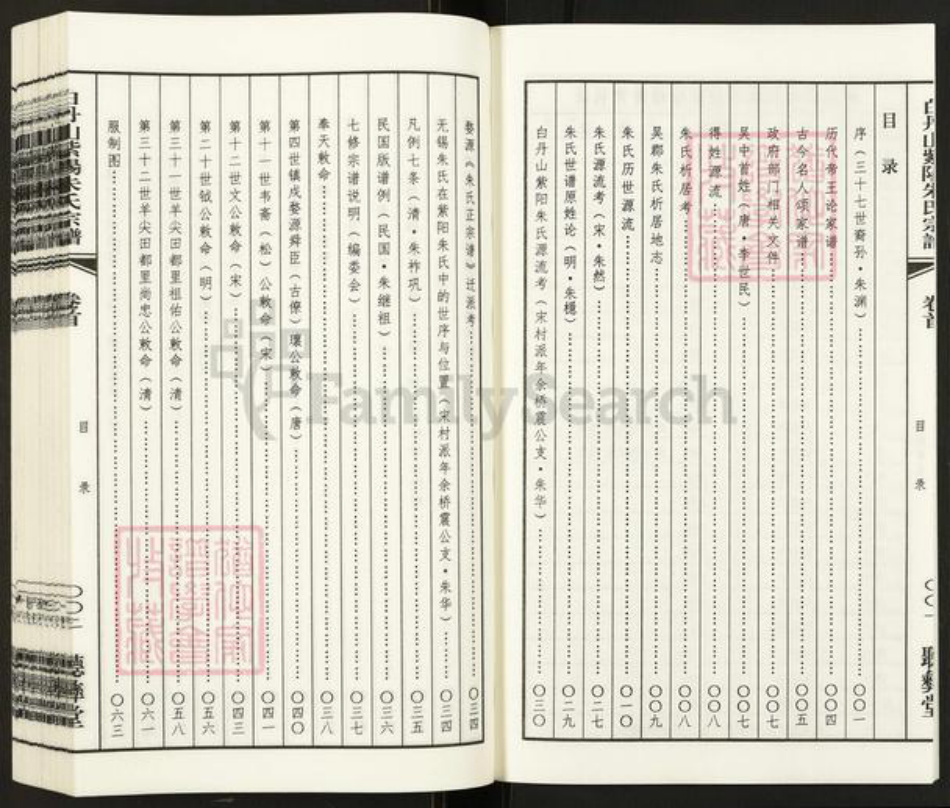 白丹山紫阳朱氏宗谱
卷首
目录
〇〇一
聽彝堂
目录
序（三十七世裔孙·朱渊）……〇〇一
历代帝王论家谱……〇〇四
古今名人颂家谱……〇〇五
政府部门相关文件……〇〇七
吴中首姓（唐·李世民）……〇〇七
得姓源流……〇〇八
朱氏析居考……〇〇八
吴郡朱氏析居地志……〇〇九
朱氏历世源流……〇一〇
朱氏源流考（宋·朱然）……〇二七
朱氏世谱原姓论（明·朱穗）……〇二九
白丹山紫阳朱氏源流考（宋村派年余桥震公支·朱华）……〇三〇
婺源《朱氏正宗谱》迁派考……〇三四
无锡朱氏在紫阳朱氏中的世序与位置（宋村派年余桥震公支·朱华）……〇三四
凡例七条（清·朱祚巩）……〇三五
民国版谱例（民国·朱继祖）……〇三六
七修宗谱说明（编委会）……〇三七
奉天敕命……〇三八
第四世镇戍婺源舜臣（古僚）瓌公敕命（唐）……〇四〇
第十一世韦斋（松）公敕命（宋）……〇四一
第十二世文公敕命（宋）……〇四三
第二十世钺公敕命（明）……〇五六
第三十一世羊尖田都里祖佑公敕命（清）……〇五八
第三十二世羊尖田都里尚忠公敕命（清）……〇六一
服制图……〇六三
白丹山紫阳朱氏宗谱
卷首
目录
〇〇二
聽彝堂
FamilySearch